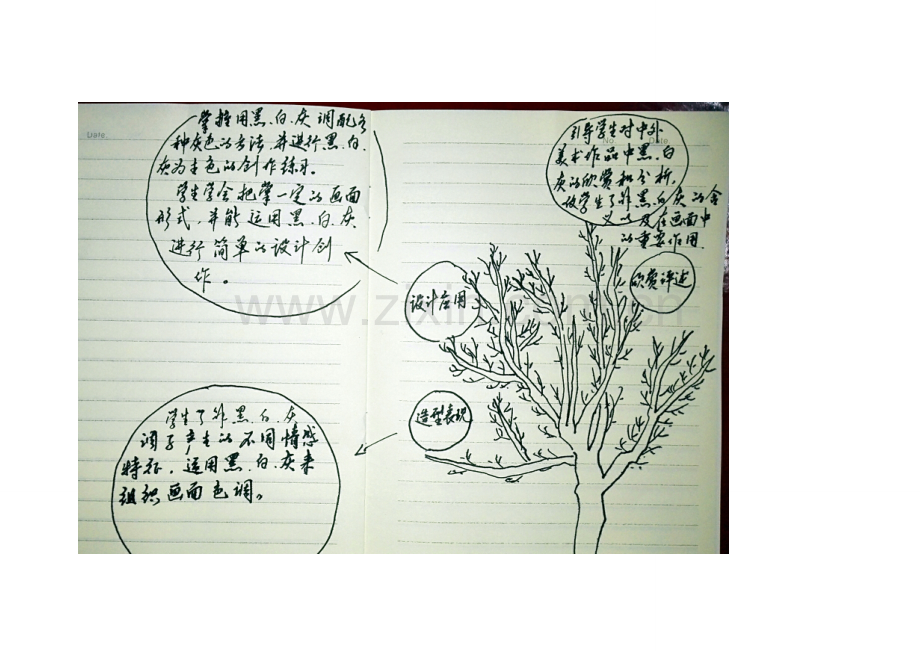 掌握用黑.白.灰调配各
种灰色的方法,并进行黑.白.
灰为主色的创作练习。
学生学会把掌一定的画面
形式,并能运用黑.白.灰
进行简单的设计创
作。
学生了解黑.白.灰
调子产生的不同情感
特征,运用黑.白.灰来
组织画面色调。
设计应用
造型表现
引导学生对中外
美术作品中黑.白
灰的欣赏和分析,
使学生了解黑.白.灰的含
义以及在画面中
的重要作用
欣赏评述
Date
No.
Date